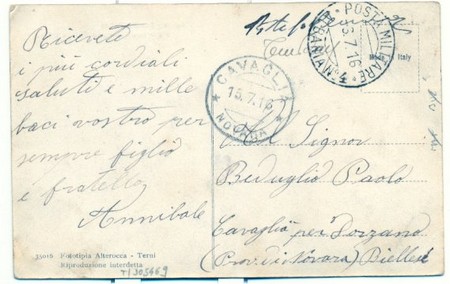 Ricevete
i più cordiali
saluti e mille
baci vostro per
sempre figlio
e fratello
Annibale
POSTA MILITARE
15.7.16
CAVAGLIÀ
15.7.16
NOVARA
Italy
Al Signor
Beduglio Paolo
Cavaglià per Dorzano
(Prov. di Novara) Biellese
31018 Fototipia Alterocca - Terni
Riproduzione interdetta
T/305669